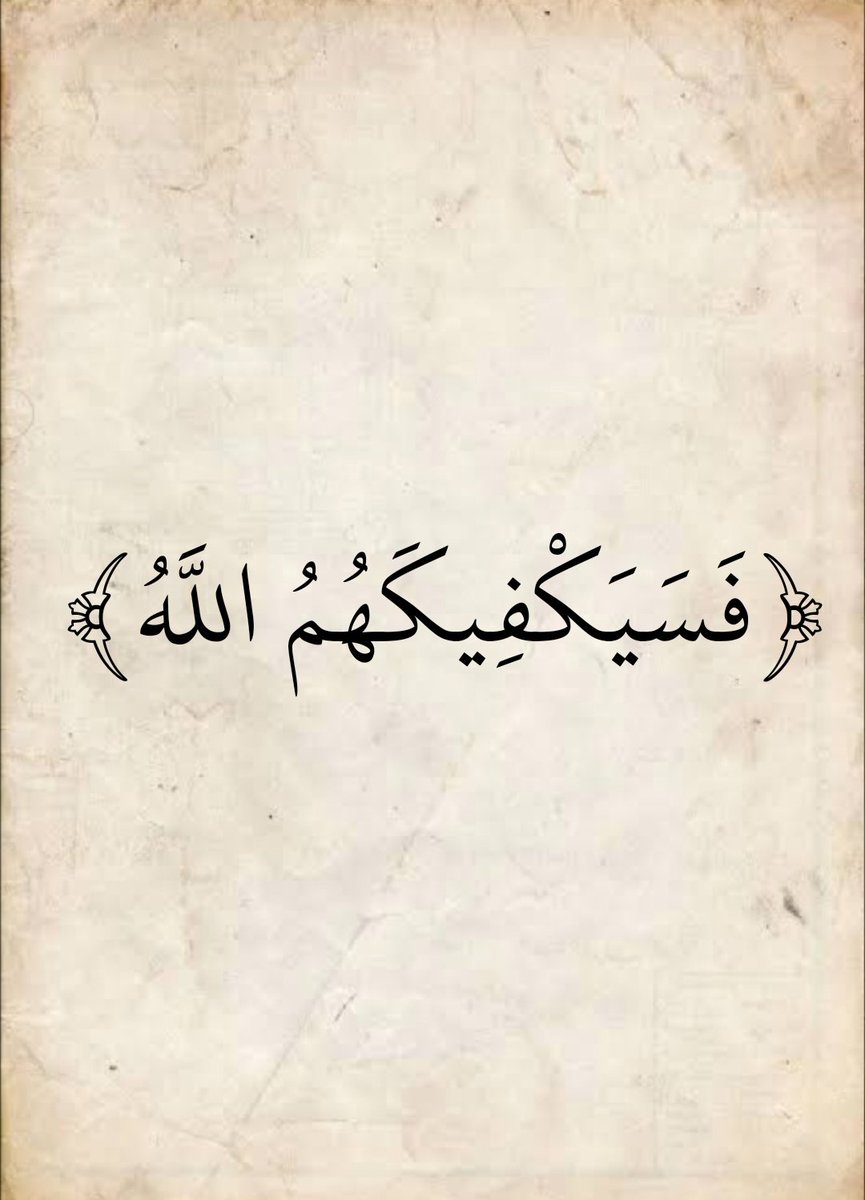 ﴿فَسَيَكْفِيكَهُمُ اللَّهُ﴾